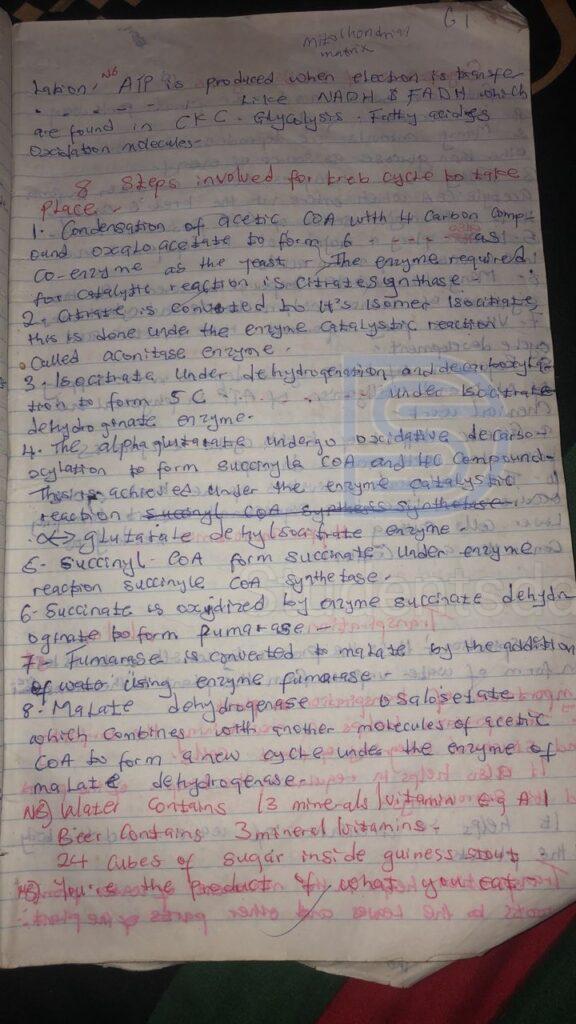 G1
mitochondrial
matrix
lation. NB ATP is produced when electron is transfe
Like NADH & FADH which
are found in CKC. Glycolysis. Fatty acid
Oxidation molecules-
8 Steps involved for kreb cycle to take
place.
1. Condensation of acetic COA with 4 carbon comp-
ound oxaloacetate to form 6 as
Co-enzyme as the yeast. The enzyme required
for catalytic reaction is citrate synthase.
2. Citrate is converted to it's isomer Isocitrate,
this is done under the enzyme catalystic reaction
Called aconitase enzyme.
3. Isocitrate under dehydrogenation and decarboxyla-
tion to form 5 C under Isocitrate
dehydroginate enzyme.
4. The alpha glutarate undergo oxidative decarbo-
oxylation to form succinyle COA and 4C Compound-
This is achieved under the enzyme catalystic
reaction succinyl COA synthesis synthetase.
glutarate enzyme.
5- Succinyl-COA form succinate under enzyme
reaction succinyle COA synthetase.
6- Succinate is oxydized by enzyme succinate dehydr
oginate to form fumarase-
7- Fumarase is converted to malate by the addition
of water Using enzyme fumarase.
8. Malate dehydrogenase
which combines with another molecules of acetic
COA to form a new cycle under the enzyme of
malate dehydrogenase.
NB) Water contains 13 minerals/vitamin e.g A1
Beer Contains 3 mineral/vitamins.
24 cubes of sugar inside guiness stout
NB) You is the product of what you eat.